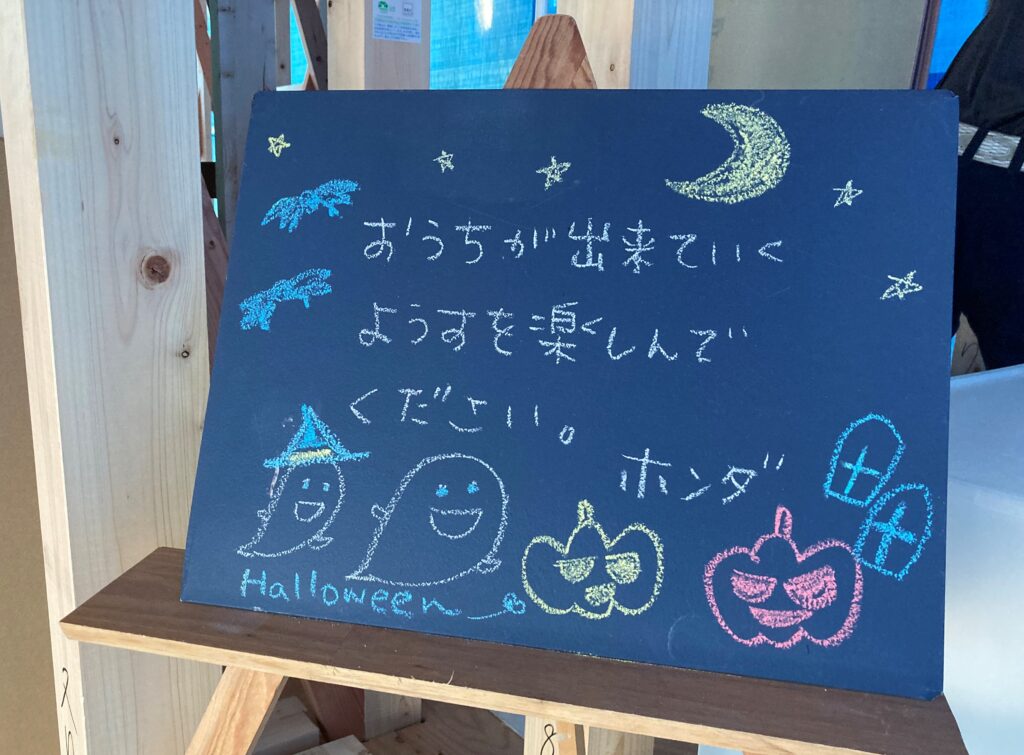 おうちが出来ていく
ようすを楽しんで
ください。
ホンダ
Halloween
8